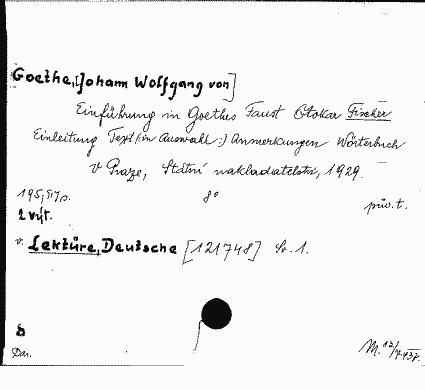 Goethe, [Johann Wolfgang von]
Einführung in Goethes Faust Otokar Fischer
Einleitung Text (: in Auswahl :) Anmerkungen Wörterbuch
V Praze, Státní nakladatelství, 1929.
195, 8°
pův. t.
2 výt.
v. Lektüre, Deutsche [121748] Sv. 1.
Dar.